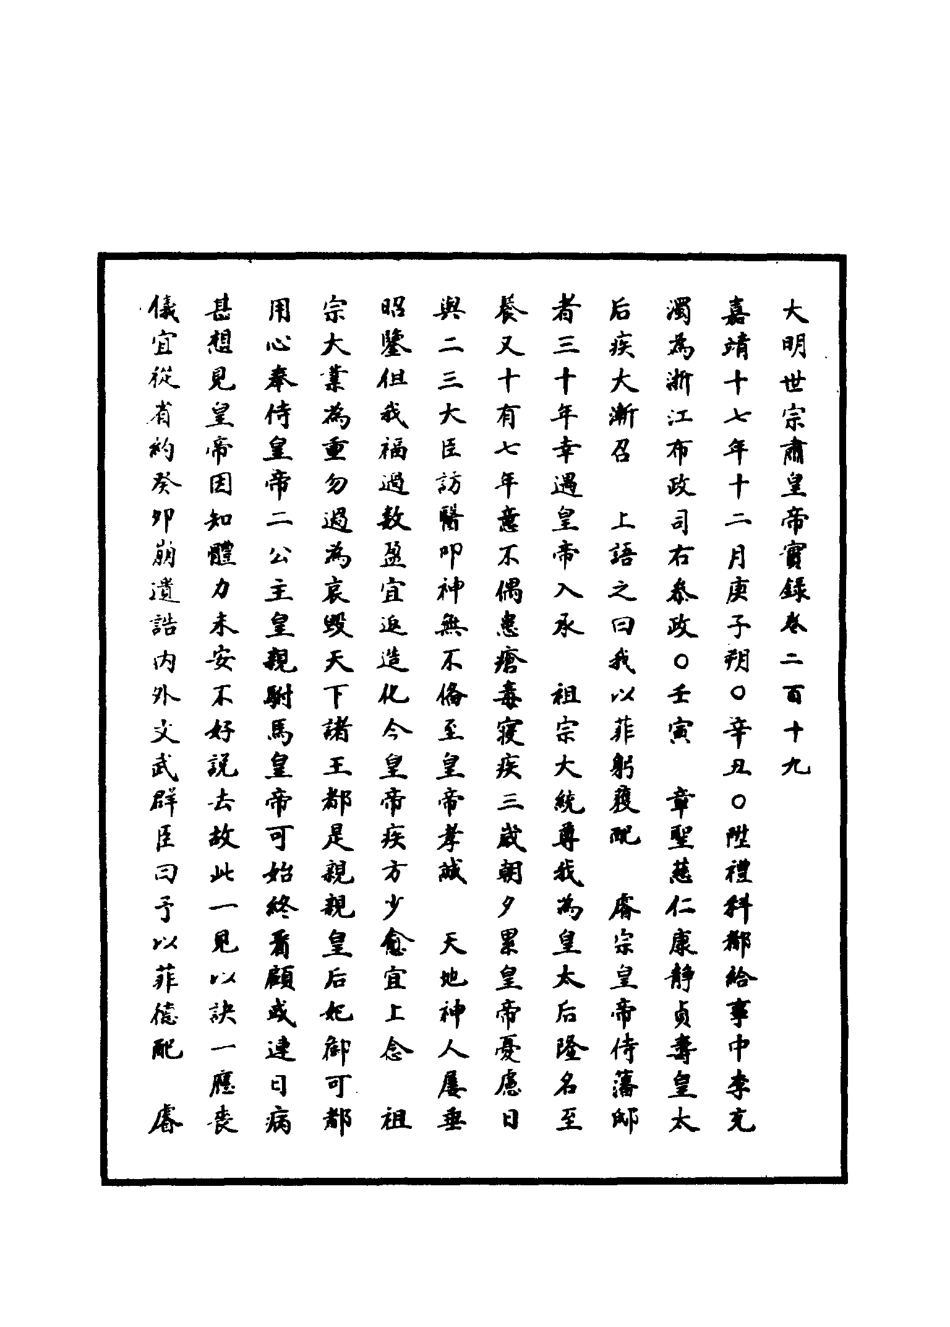 大明世宗肅皇帝實録卷二百十九
嘉靖十七年十二月庚子朔○辛丑○陞禮科都給事中李充
濁為浙江布政司右叅政○壬寅　章聖慈仁康靜貞壽皇太
后疾大漸召　上語之曰我以菲躬獲配　睿宗皇帝侍藩邸
者三十年幸遇皇帝入承　祖宗大統尊我為皇太后隆名至
養又十有七年意不偶患瘡毒寢疾三歲朝夕累皇帝憂慮日
與二三大臣訪醫叩神無不俻至皇帝孝誠　天地神人屢垂
昭鑒但我福過数盈宜返造化今皇帝疾方少愈宜上念　祖
宗大業為重勿過為哀毀天下諸王都是親親皇后妃御可都
用心奉侍皇帝二公主皇親駙馬皇帝可始終看顧或連日病
甚想見皇帝因知體力未安不好説去故此一見以訣一應丧
儀宜從省約癸卯崩遺誥内外文武群臣曰予以菲德配　睿